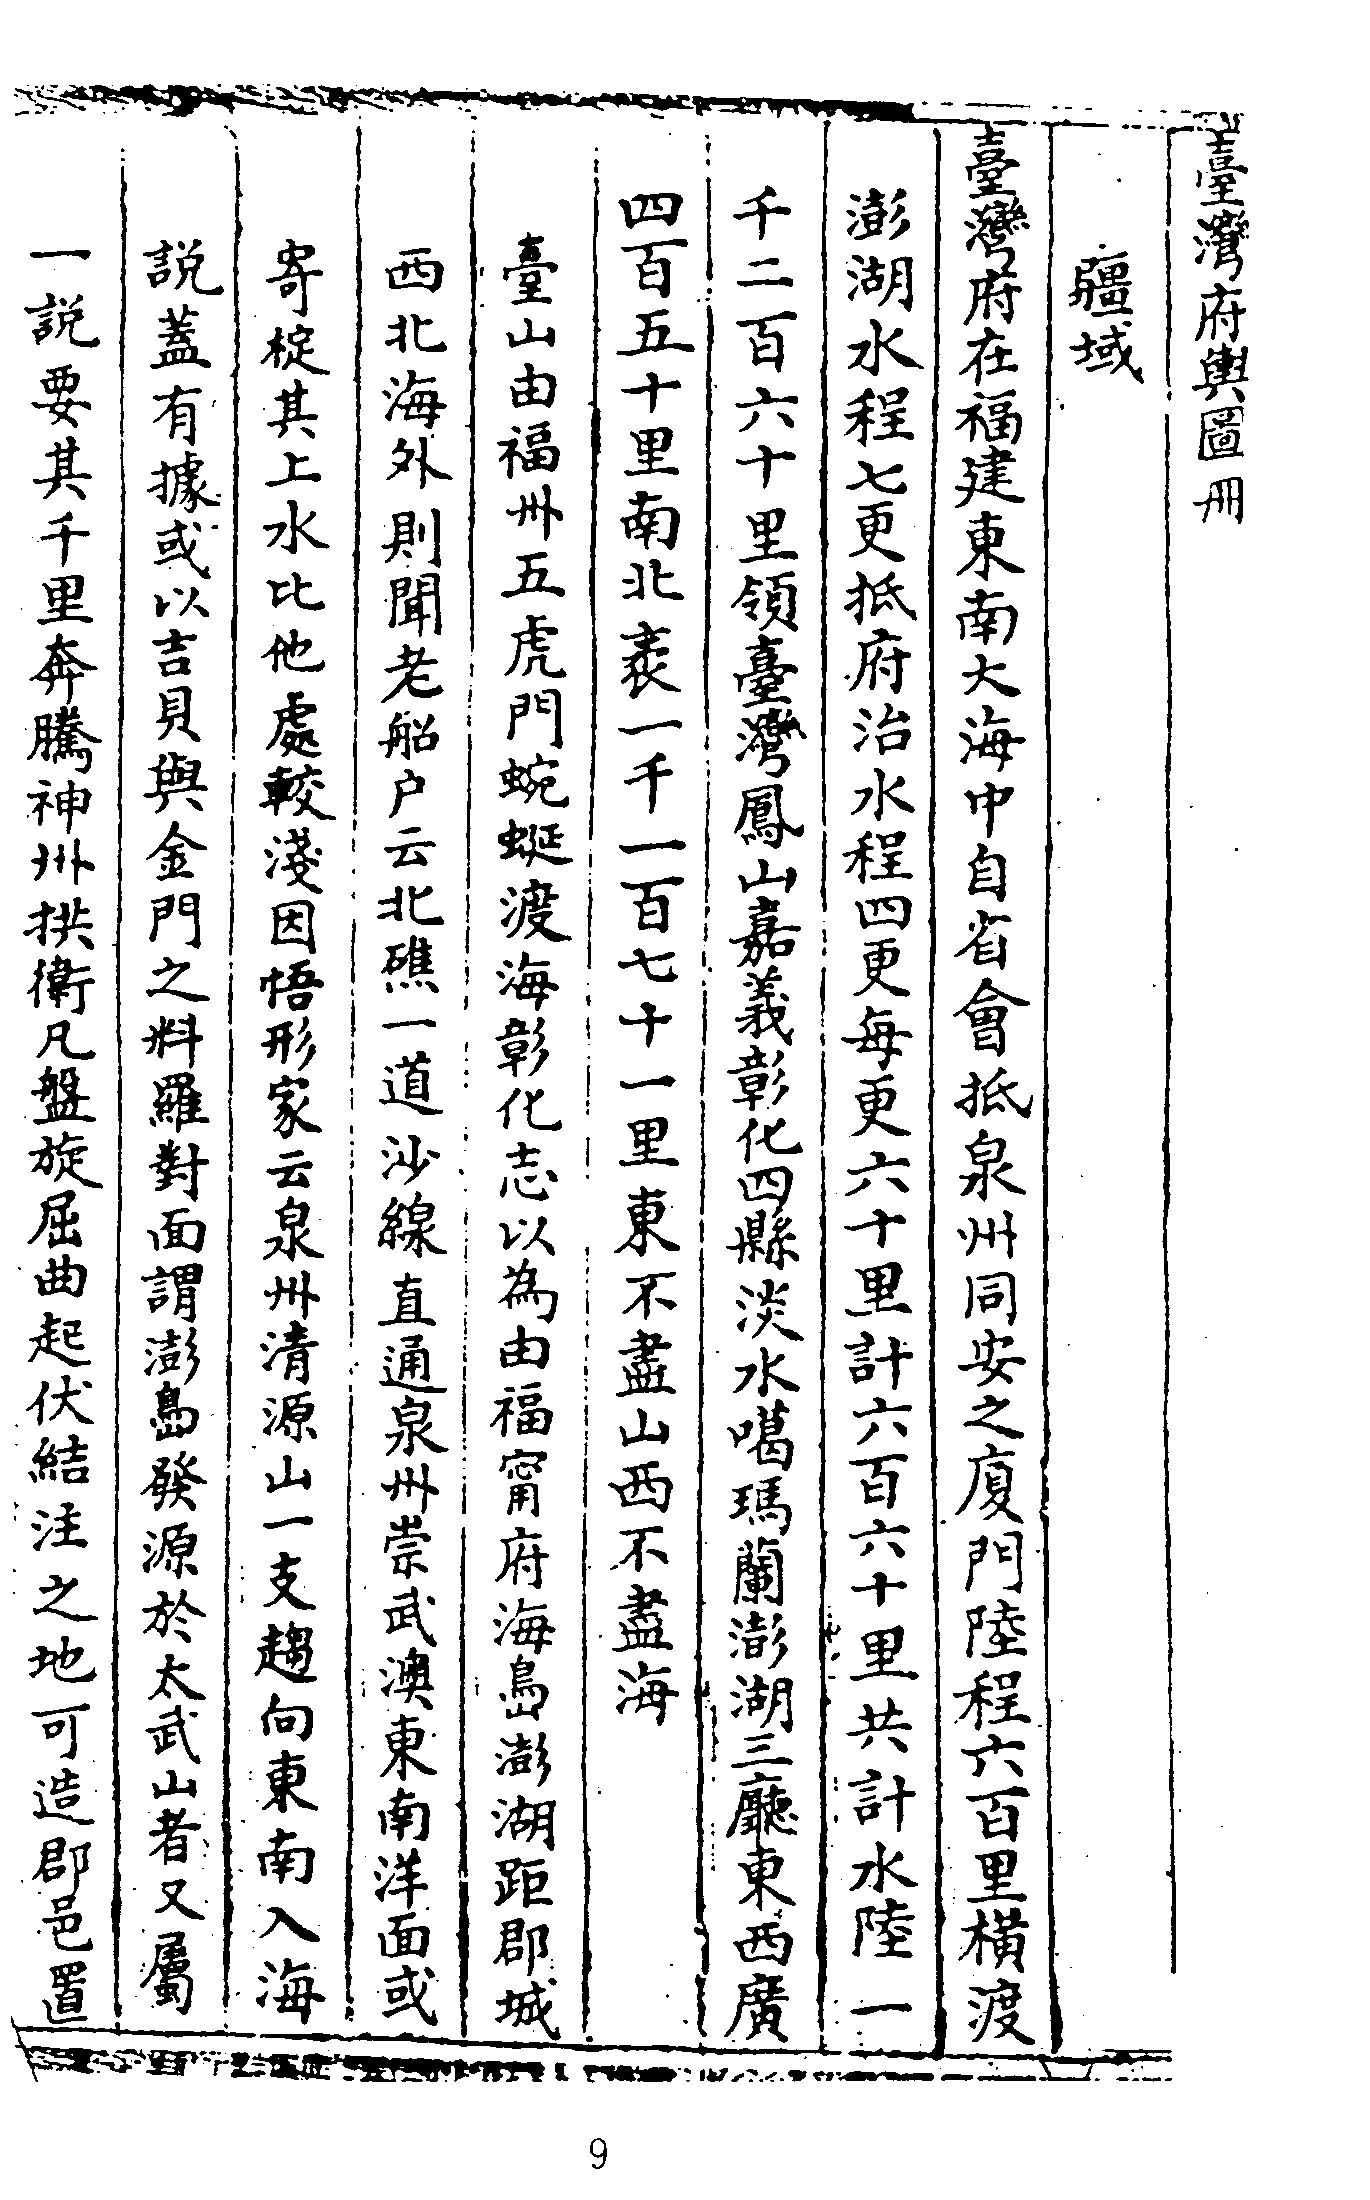 臺灣府輿圖冊
疆域
臺灣府在福建東南大海中自省會抵泉州同安之廈門陸程六百里橫渡
澎湖水程七更抵府治水程四更每更六十里計六百六十里共計水陸一
千二百六十里領臺灣鳳山嘉義彰化四縣淡水噶瑪蘭澎湖三廳東西廣
四百五十里南北袤一千一百七十一里東不盡山西不盡海
臺山由福州五虎門蜿蜒渡海彰化志以為由福甯府海島澎湖距郡城
西北海外則聞老船户云北礁一道沙線直通泉州崇武澳東南洋面或
寄椗其上水比他處較淺因悟形家云泉州清源山一支趨向東南入海
說蓋有據或以吉貝與金門之料羅對面謂澎島發源於太武山者又屬
一說要其千里奔騰神州拱衛凡盤旋屈曲起伏結注之地可造郡邑置
9